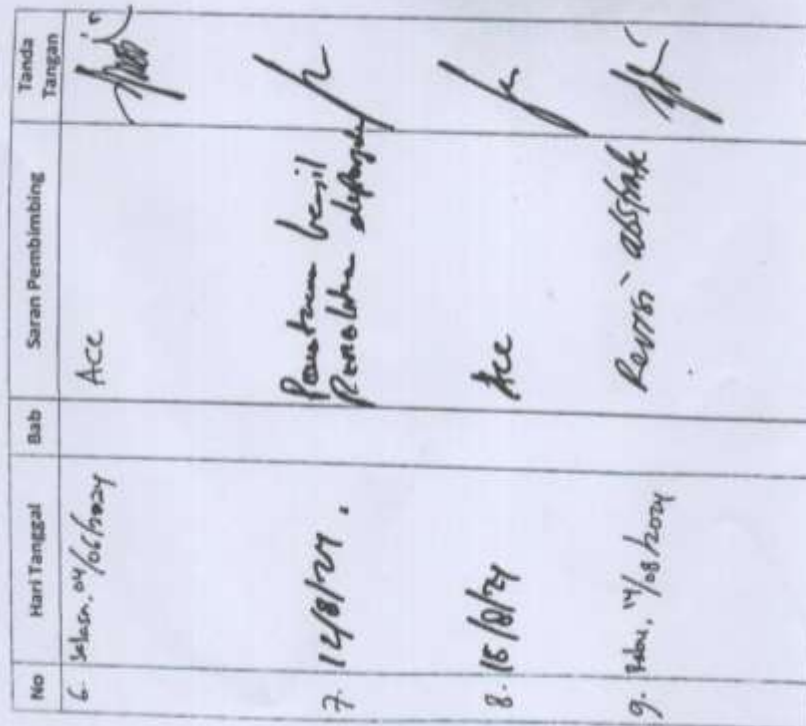 No Hari Tanggal Bab Saran Pembimbing Tanda Tangan
6. Selasa, 04/06/2024 ACC
7. 12/8/24.
hasil
Penelitian
8. 15/8/24 Acc
9. Rabu, 14/08/2024 Revisi abstrak